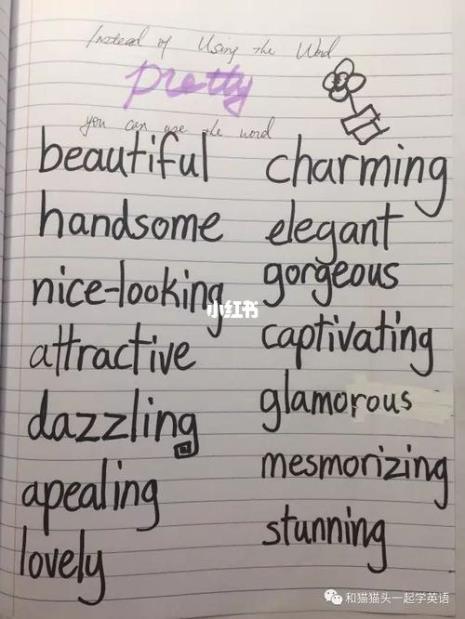 Instead of Using the Word
pretty
you can use the word
beautiful
handsome
nice-looking
attractive
dazzling
apealing
lovely
charming
elegant
gorgeous
captivating
glamorous
mesmorizing
stunning
小红书
和猫猫头一起学英语